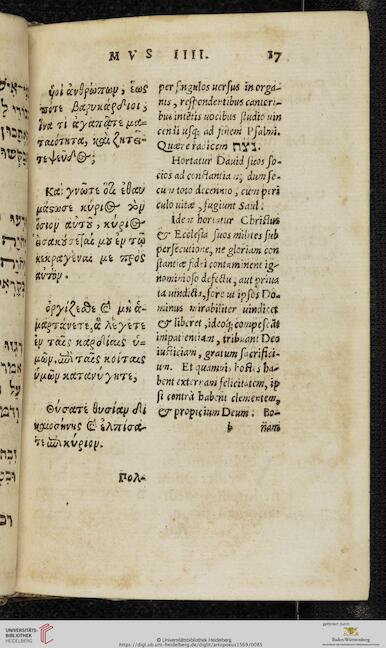 MVS IIII. 17
ὑοὶ ἀνθρώπων, ἕως
πότε βαρυκάρδιοι,
ἵνα τί ἀγαπᾶτε μα-
ταιότητα, καὶ ζητεῖ-
τε ψεῦδος;
Καὶ γνῶτε ὅτι ἐθαυ
μάστωσε κύριος τὸν
ὅσιον αὐτοῦ, κύριος
εἰσακούσεταί μου ἐν τῷ
κεκραγέναι με πρὸς
αὐτόν.
ὀργίζεσθε καὶ μὴ ἁ-
μαρτάνετε, ἃ λέγετε
ἐν ταῖς καρδίαις ὑ-
μῶν, ἐπὶ ταῖς κοίταις
ὑμῶν κατανύγητε,
Θύσατε θυσίαν δι
καιοσύνης καὶ ἐλπίσα-
τε ἐπὶ κύριον.
Πολ-
per singulos versus in orga-
nis, respondentibus cantori-
bus intētis vocibus studio vin
cendi usq; ad finem Psalmi.
Quære radicem נצח
Hortatur David suos so-
cios ad constantiam, dum se-
cum toto decennio, cum peri
culo vitæ, fugiunt Saul.
Idem hortatur Christus
& Ecclesia suos milites sub
persecutione, ne gloriam con
stantiæ fidei contaminent ig-
nominioso defectu, aut priva
ta vindicta, fore ut ipsos Do-
minus mirabiliter vindicet
& liberet, ideoq; compescāt
impatientiam, tribuant Deo
iustitiam, gratum sacrifici-
um. Et quamvis hostes ha-
bent externam felicitatem, ip
si contrà habent clementem,
& propicium Deum: Bo-
b nam
UNIVERSITÄTS-
BIBLIOTHEK
HEIDELBERG
© Universitätsbibliothek Heidelberg
https://digi.ub.uni-heidelberg.de/diglit/artopoeus1569/0085
gefördert durch
Baden-Württemberg